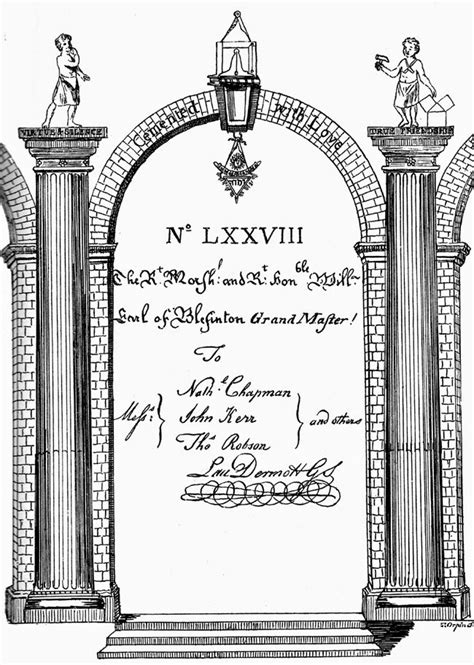 VIRTUE & SILENCE
Cemented with Love
TRUE FRIENDSHIP
Nº LXXVIII
The Rt. Worshl. and Rt. Honble. Willm.
Earl of Blesinton Grand Master!
To
Messrs. Nathl. Chapman
John Kerr
Thos. Robson
and others
Lau Dermott G S